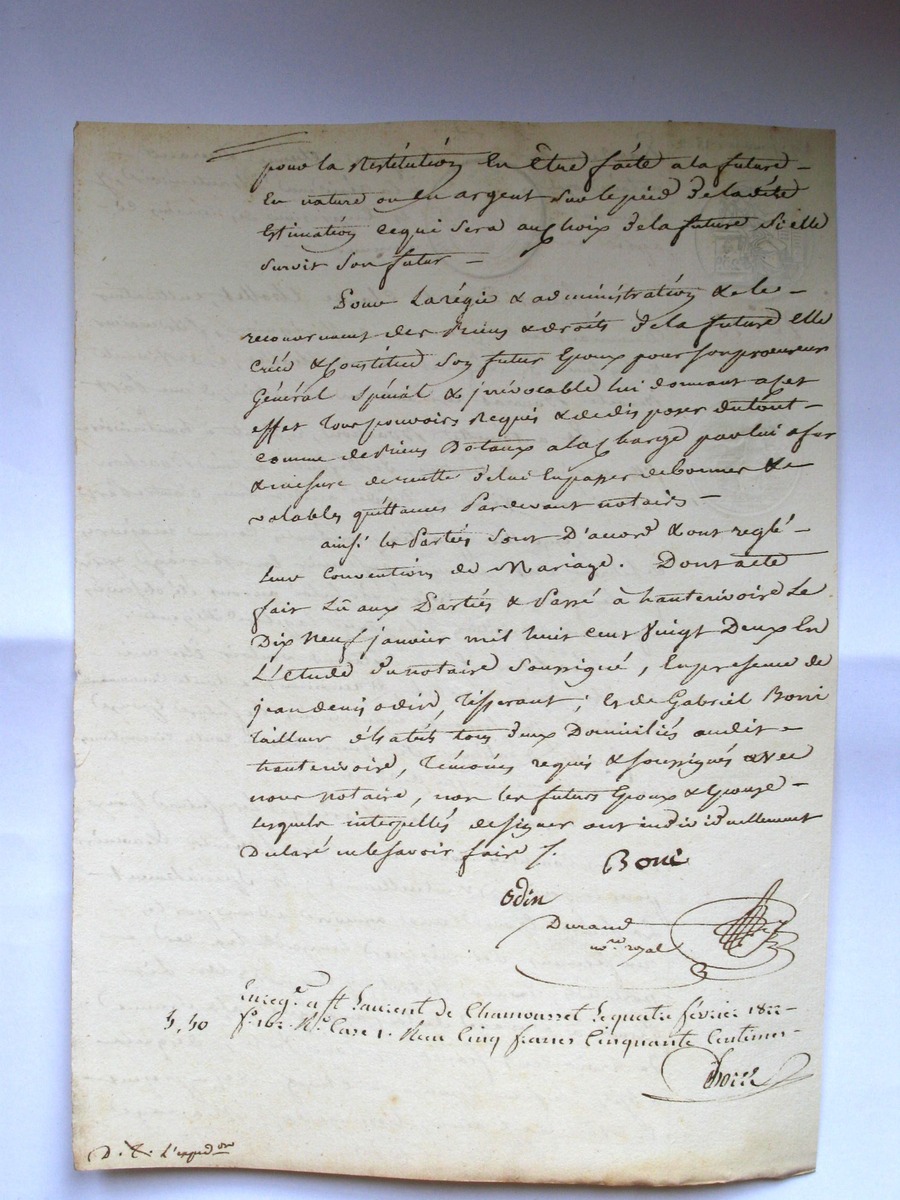 pour la restitution En être faite a la future
En nature ou en argent sur le pied de la dite
Estimation ce qui sera au choix de la future si elle
survit son futur
Pour la régie & administration & le
recouvrement des biens & droits de la future elle
crée & Constitue son futur Epoux pour son procureur
Général spécial & irrévocable lui donnant a cet
effet tous pouvoirs requis & de disposer du tout
comme de biens Dotaux a la charge par lui a fur
& mesure de recette d'elui en passer de bonnes &
valables quittances Pardevant notaires
ainsi les Parties sont D'accord & ont reglé
leur Convention de Mariage. Dont acte
fait Lû aux Parties & Passé à hauterivoire Le
Dix Neuf janvier mil huit cent Vingt Deux En
L'étude du notaire soussigné, En presence de
jean denis odin, Tisserant; & de Gabriel Boni
Tailleur d'habits tous deux Domiciliés audit
hauterivoire, Témoins requis & soussignés avec
nous notaire, non les futurs Epoux & Epouse
lesquels interpellés de signer ont individuellement
Declaré ne le savoir faire /.
Boni
Odin
Durand
no.re royal
Enreg.é a St Laurent de Chamousset le quatre février 1822
3,50 f.o 162 R.o Case 1. Reçu Cinq francs Cinquante Centimes
D. t. L'exped.on